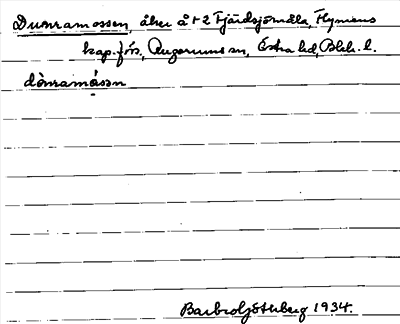 Dunramossen, åker å 1-2 Fjärdsjömåla, Flymens
kap. förs., Augerums sn, Östra hd, Blek. l.
dònramåsən
Barbro Götherberg 1934.